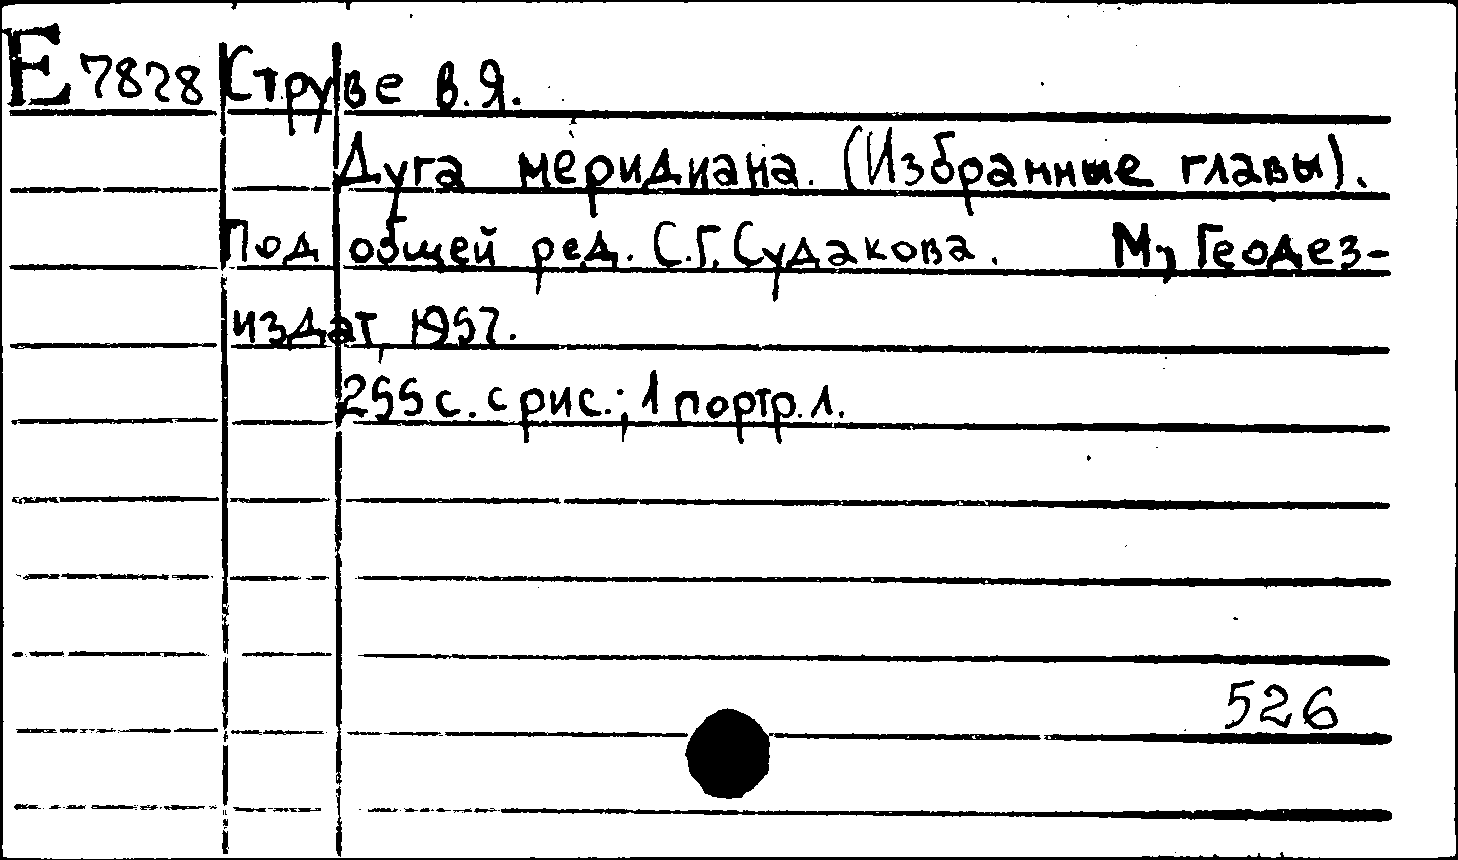 E 7828 Струве В.Я.
Дуга меридиана. (Избранные главы).
Под общей ред. С.Г. Судакова. М, Геодез-
издат, 1957.
255 с. с рис.; 1 портр. л.
526